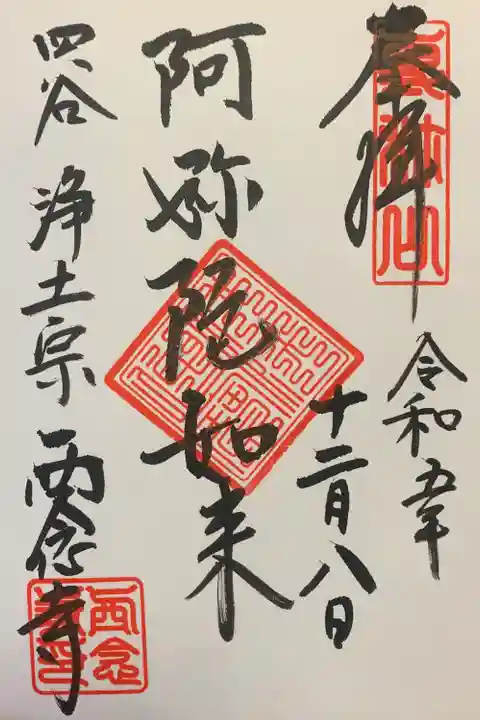 奉拝
令和五年
十二月八日
阿弥陀如来
四谷 浄土宗 西念寺
西念